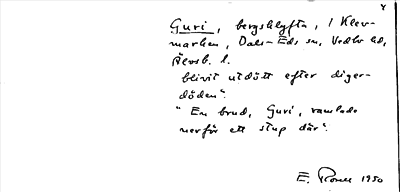 Guri, bergsklyfta, i Klev-
marken, Dals-Eds sn, Vedbo hd,
Älvsb. l.
blivit utdött efter diger-
döden".
"En brud, Guri, ramlade
nerför ett stup där".
E. 1950